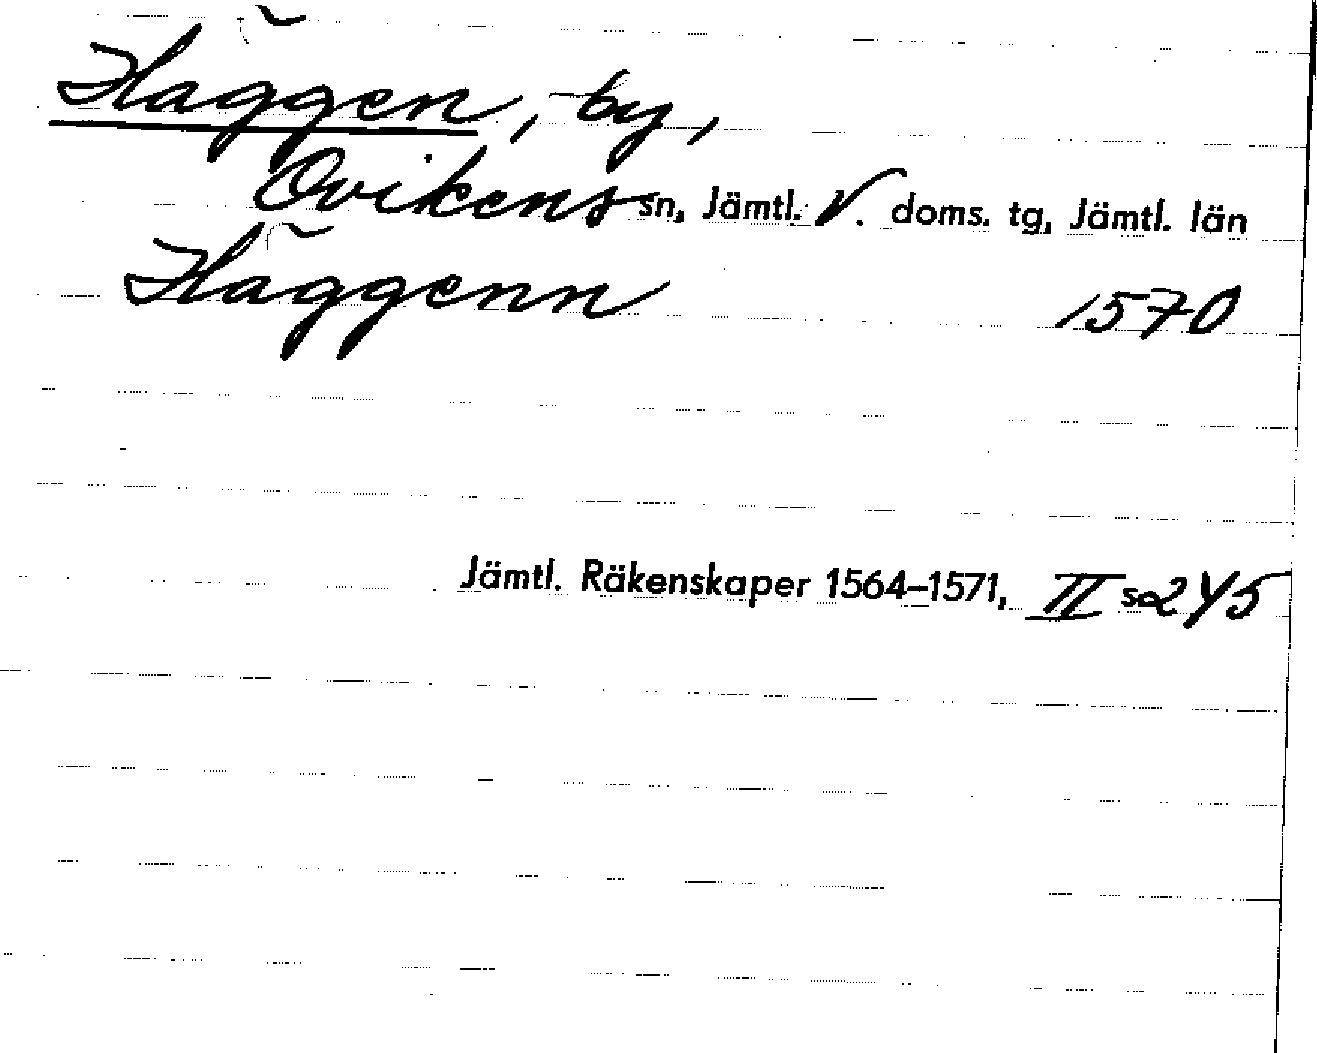 Häggen, by,
Ovikens sn, Jämtl. V. doms. tg, Jämtl. län
Häggenn 1570
Jämtl. Räkenskaper 1564–1571, II s 245